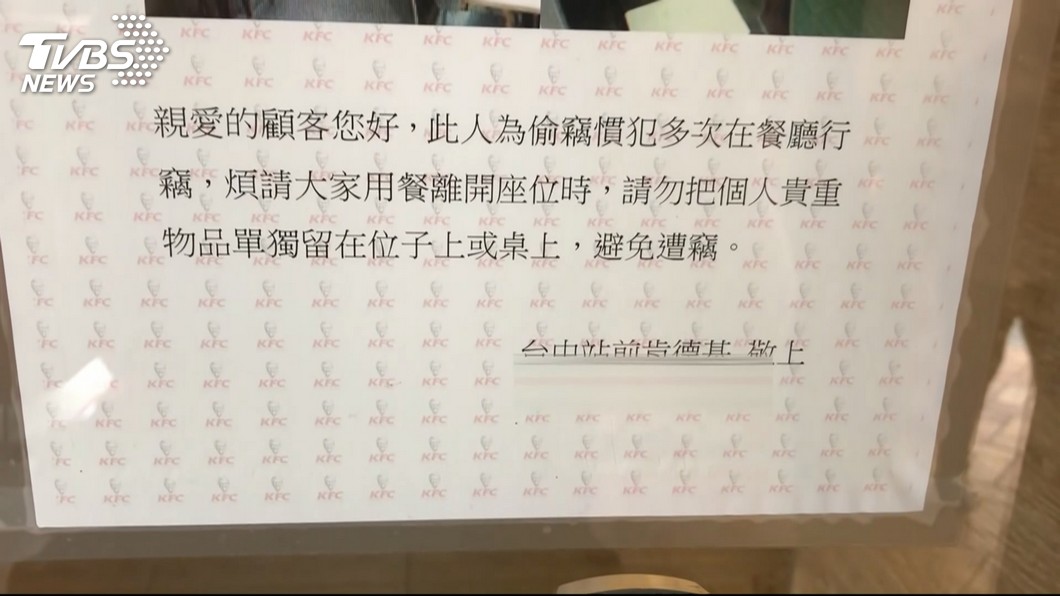 TVBS
NEWS
親愛的顧客您好，此人為偷竊慣犯多次在餐廳行
竊，煩請大家用餐離開座位時，請勿把個人貴重
物品單獨留在位子上或桌上，避免遭竊。
台中站前肯德基 敬上
KFC